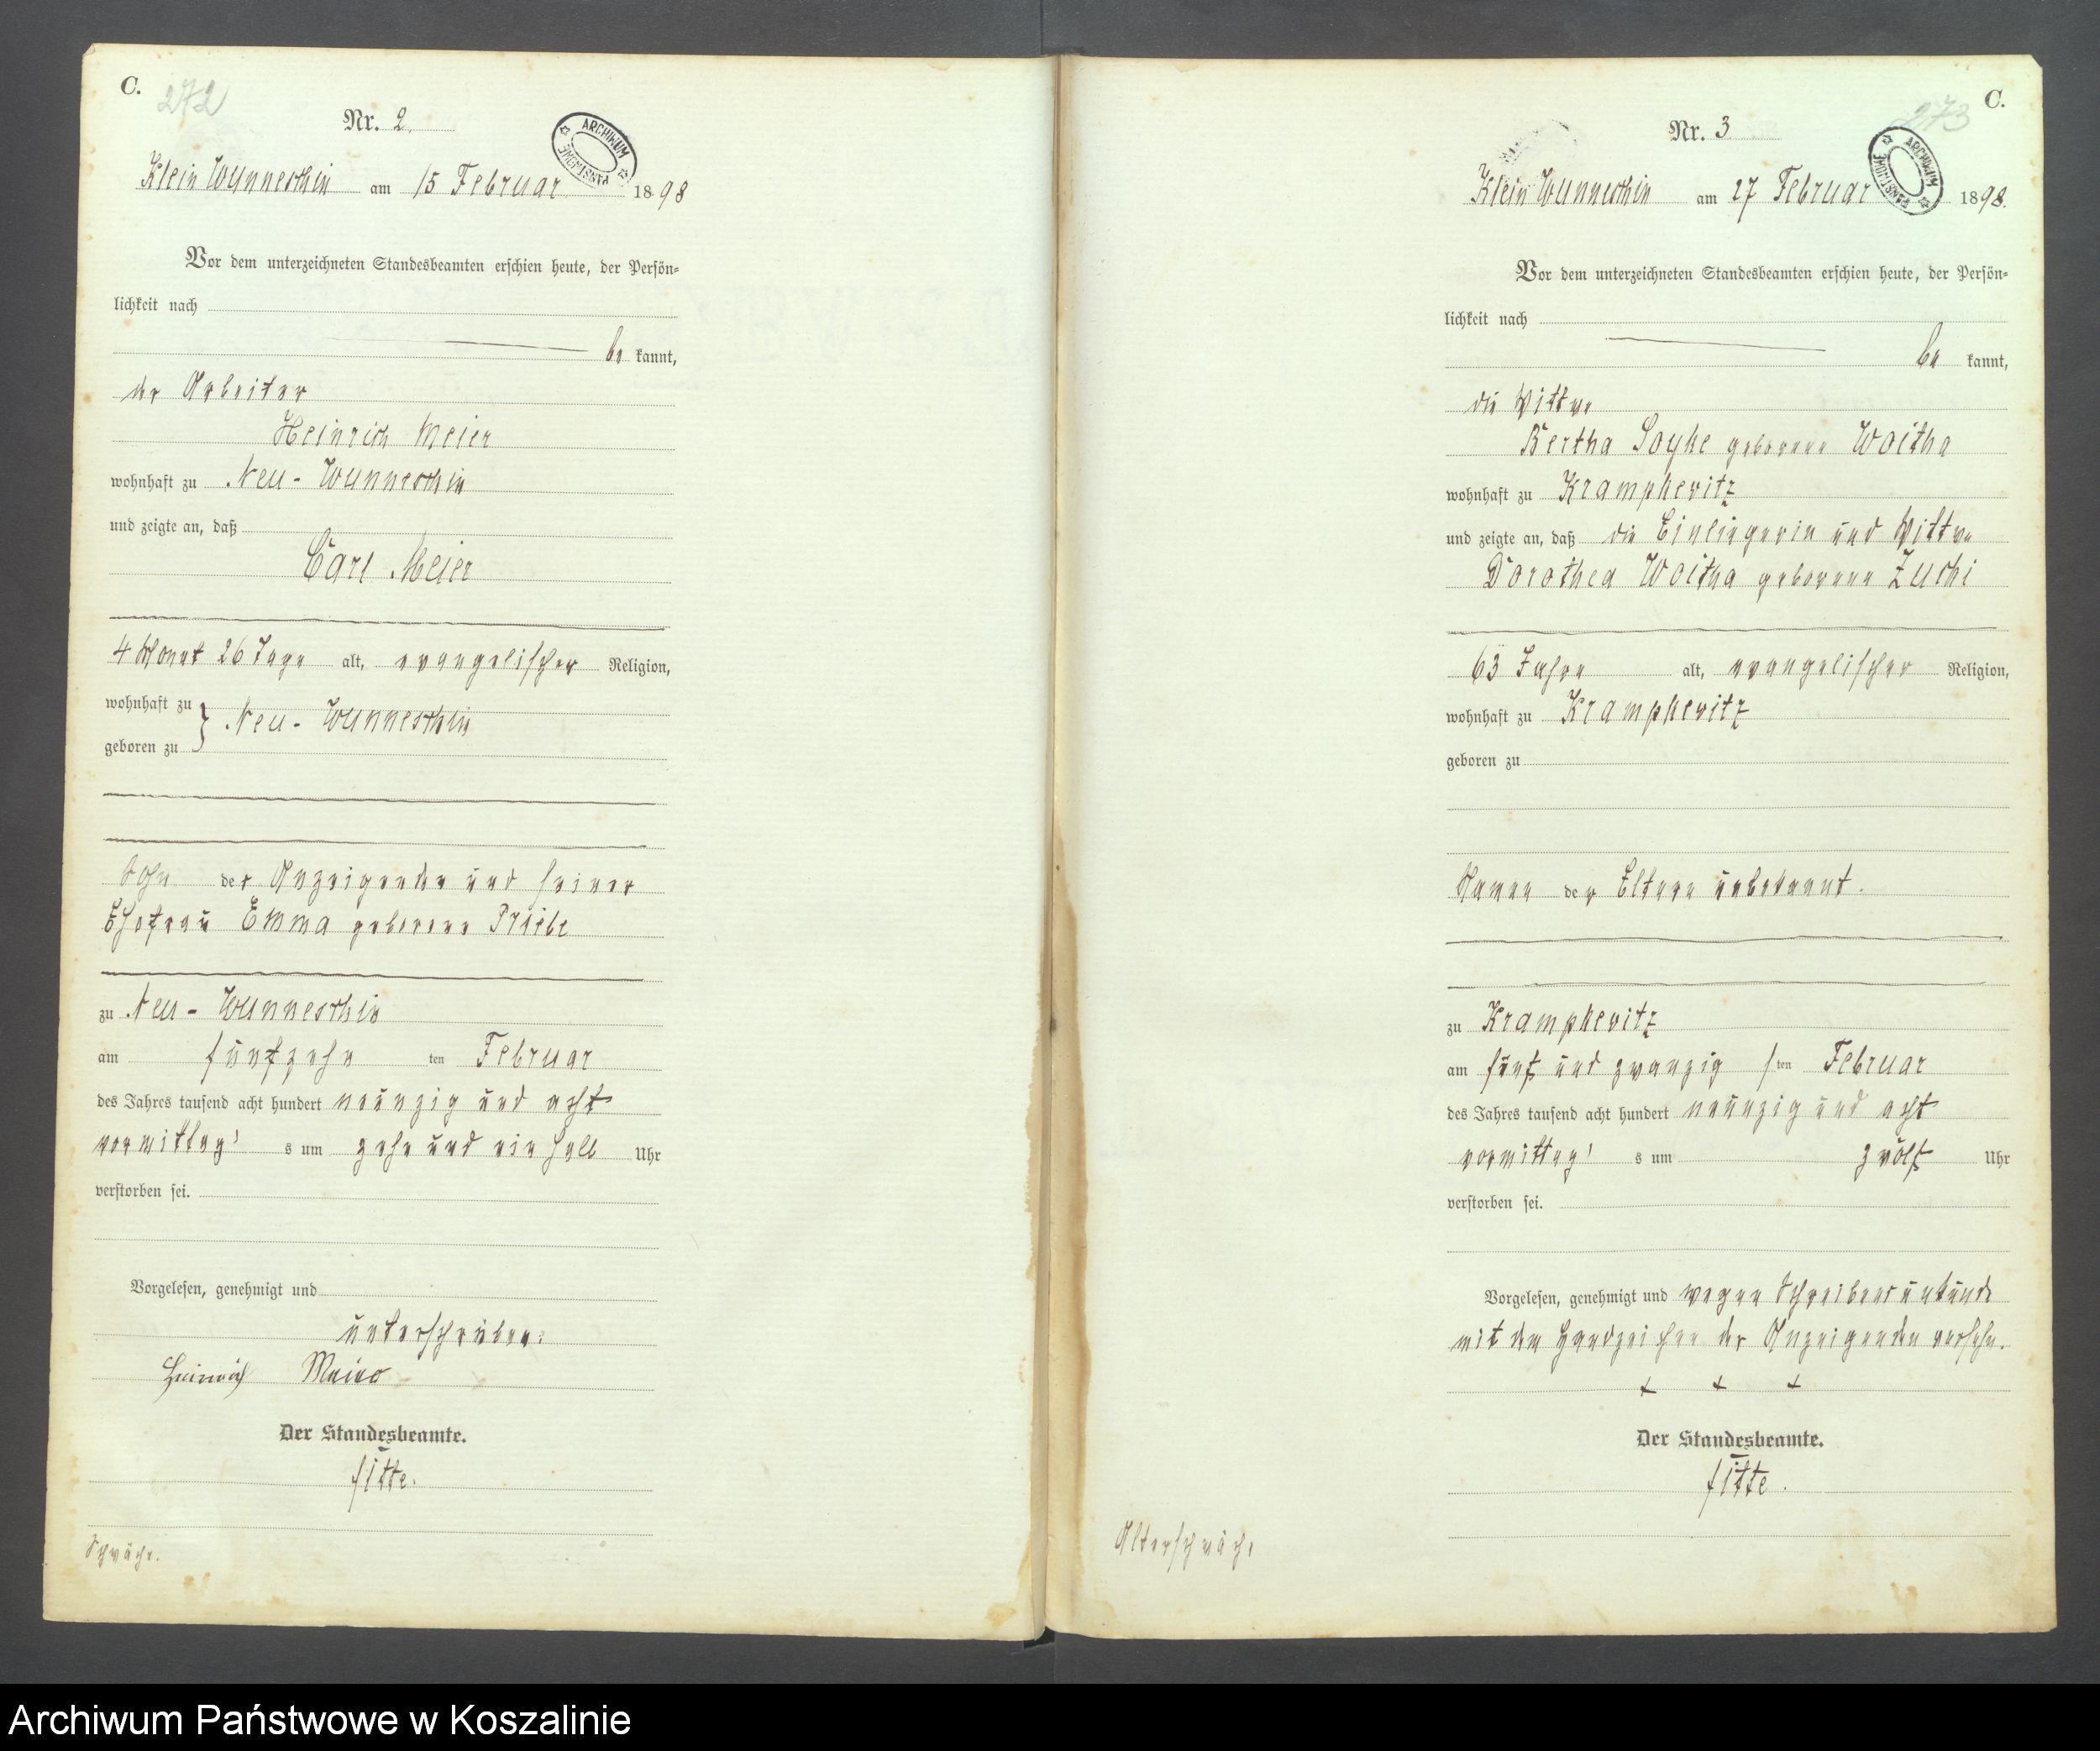 C.
272
Nr. 2.
ARCHIWUM PAŃSTWOWE
Klein Wunneschin am 15 Februar 1898
Vor dem unterzeichneten Standesbeamten erschien heute, der Persön-
lichkeit nach
be kannt,
der Arbeiter
Heinrich Meier
wohnhaft zu Neu-Wunneschin
und zeigte an, daß
Carl Meier
4 Monat 26 Tage alt, evangelischer Religion,
wohnhaft zu
} Neu-Wunneschin
geboren zu
Sohn der Anzeigenden und seiner
Ehefrau Emma geborene Priebe
zu Neu-Wunneschin
am fünfzehn ten Februar
des Jahres tausend acht hundert neunzig und acht
vormittag's um zehn und ein halb Uhr
verstorben sei.
Vorgelesen, genehmigt und
unterschrieben.
Heinrich Meier
Der Standesbeamte.
Schwäche.
C.
273
Nr. 3
ARCHIWUM PAŃSTWOWE
Klein Wunneschin am 27 Februar 1898.
Vor dem unterzeichneten Standesbeamten erschien heute, der Persön-
lichkeit nach
be kannt,
die Wittwe
Bertha Soyke geborene Woitha
wohnhaft zu Krampkewitz
und zeigte an, daß die Einliegerin und Wittwe
Dorothea Woitha geborene Zuchi
63 Jahre alt, evangelischer Religion,
wohnhaft zu Krampkewitz
geboren zu
Namen der Eltern unbekannt.
zu Krampkewitz
am fünf und zwanzig sten Februar
des Jahres tausend acht hundert neunzig und acht
vormittag's um zwölf Uhr
verstorben sei.
Vorgelesen, genehmigt und wegen Schreibensunkunde
mit dem Handzeichen der Anzeigenden versehn.
+ + +
Der Standesbeamte.
Alterschwäche
Archiwum Państwowe w Koszalinie